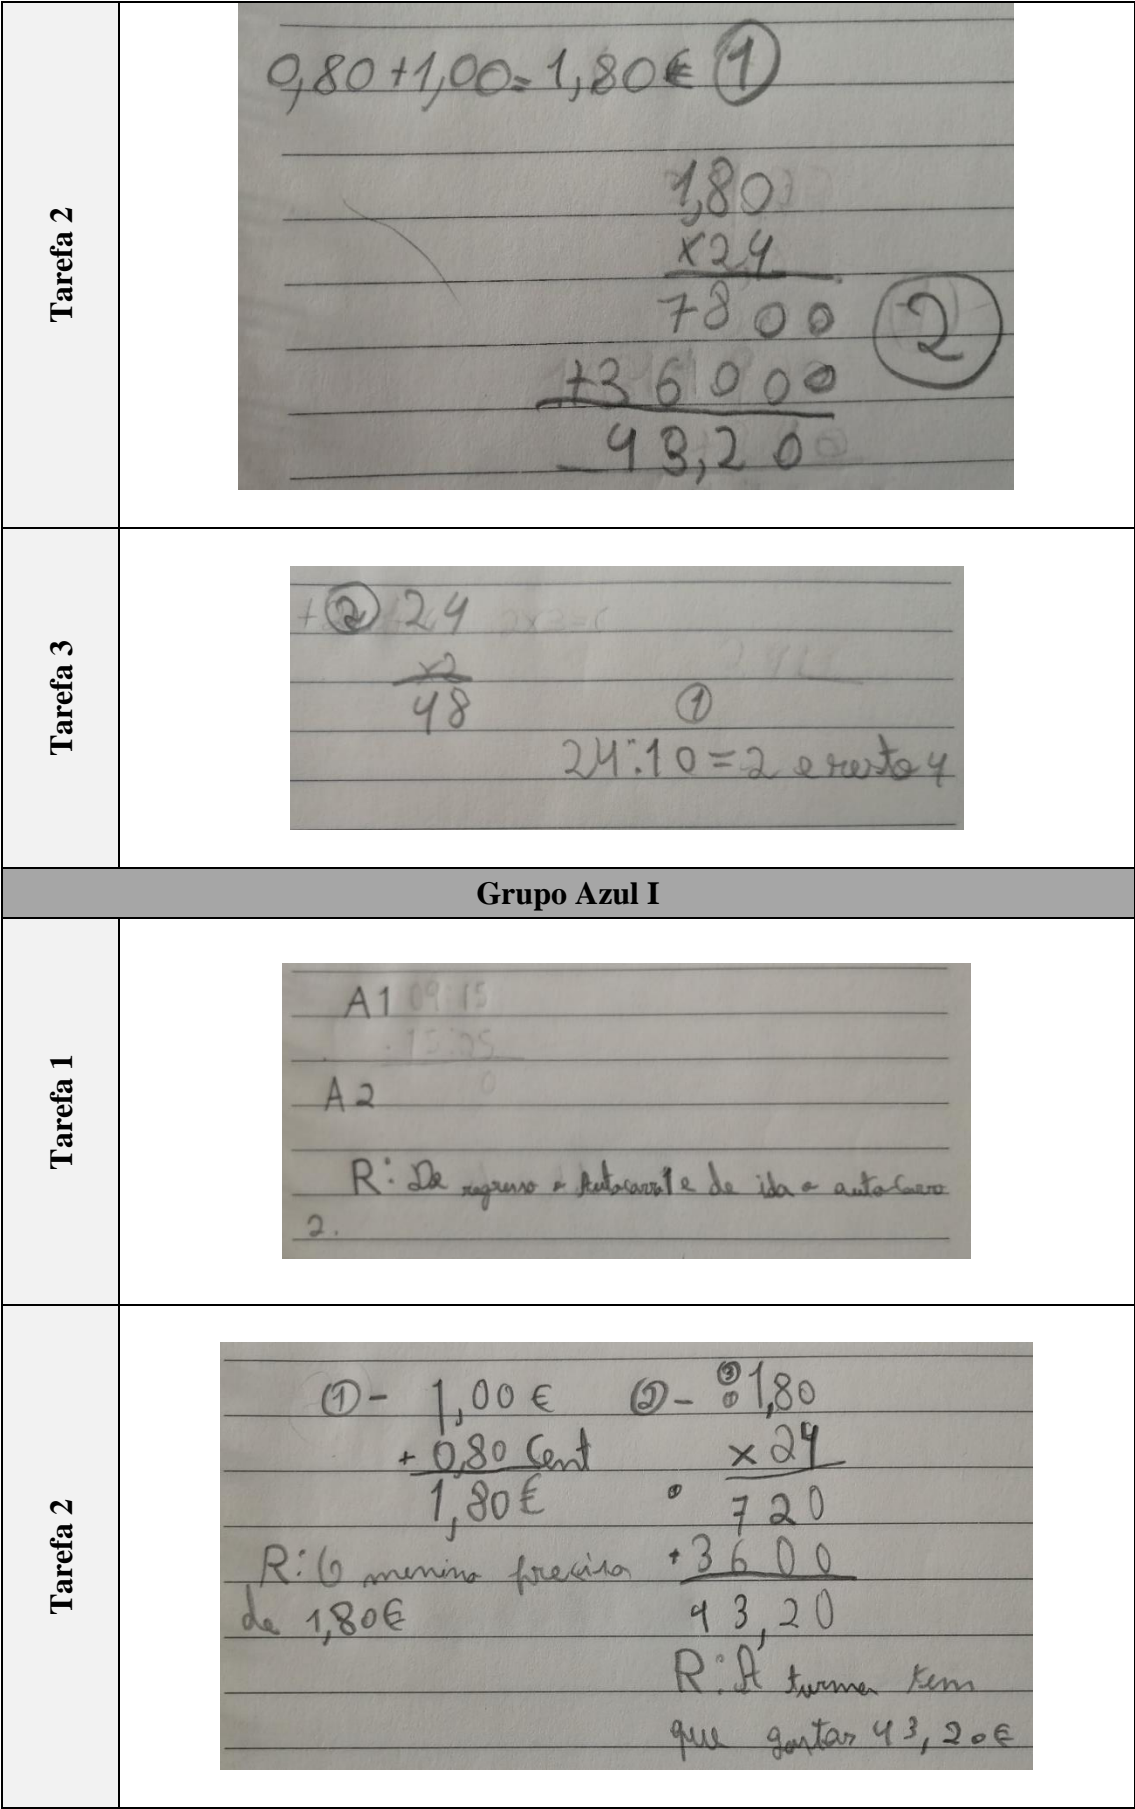 Tarefa 2
0,80+1,00=1,80€ 1
1,80
x24
7800
+36000
43,20
2
Tarefa 3
+ 2 24
x2
48
1
24:10=2 e resto 4
Grupo Azul I
Tarefa 1
A1 09:15
15:25
0
A2
R: De regresso o Autocarro 1 e de ida o autocarro
2.
Tarefa 2
1 - 1,00€
+ 0,80 Cent
1,80€
R: O menino precisa
de 1,80€
2 - 1,80
x 24
720
+3600
43,20
R: A turma tem
que gastar 43,20€